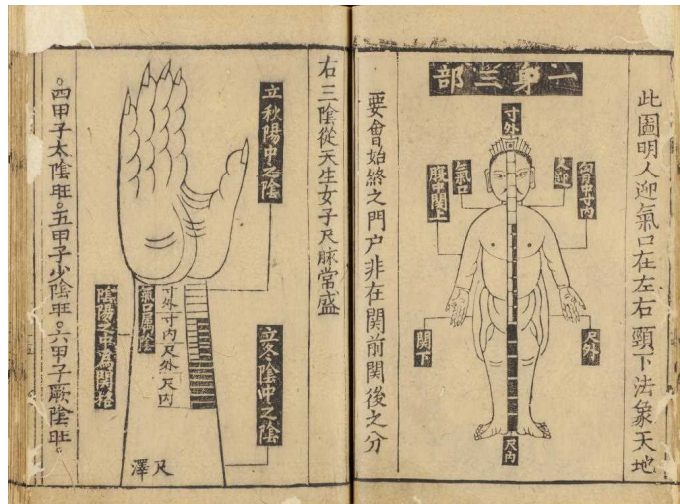 此圖明人迎氣口在左右頸下法象天地
一身三部
寸外
人迎
胷中寸內
氣口
腹中関上
尺外
関下
尺內
要會始終之門户非在関前関後之分
右三陰從天生女子尺脉常盛
立秋陽中之陰
立冬陰中之陰
寸外寸內尺外尺內
氣口屬陰
陰陽之中為関格
尺澤
四甲子太陰旺五甲子少陰旺六甲子厥陰旺